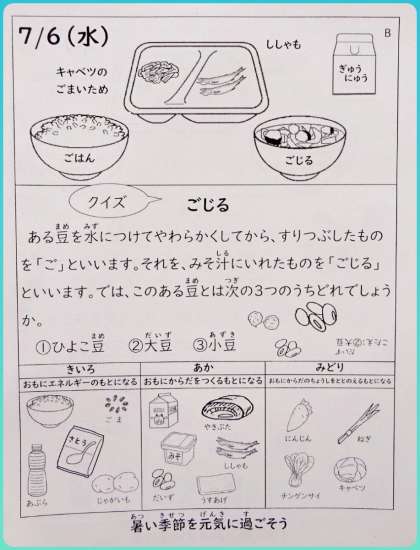 7/6(水)
B
ししゃも
キャベツの
ごまいため
ぎゅう
にゅう
ごはん
ごじる
クイズ
ごじる
ある豆を水につけてやわらかくしてから、すりつぶしたもの
を「ご」といいます。それを、みそ汁にいれたものを「ごじる」
といいます。では、このある豆とは次の3つのうちどれでしょう
か。
①ひよこ豆 ②大豆 ③小豆
こたえ:②大豆
きいろ
おもにエネルギーのもとになる
あか
おもにからだをつくるもとになる
みどり
おもにからだのちょうしをととのえるもとになる
ごま
さとう
あぶら
じゃがいも
やきぶた
みそ
ししゃも
だいず
うすあげ
にんじん
ねぎ
チンゲンサイ
キャベツ
暑い季節を元気に過ごそう